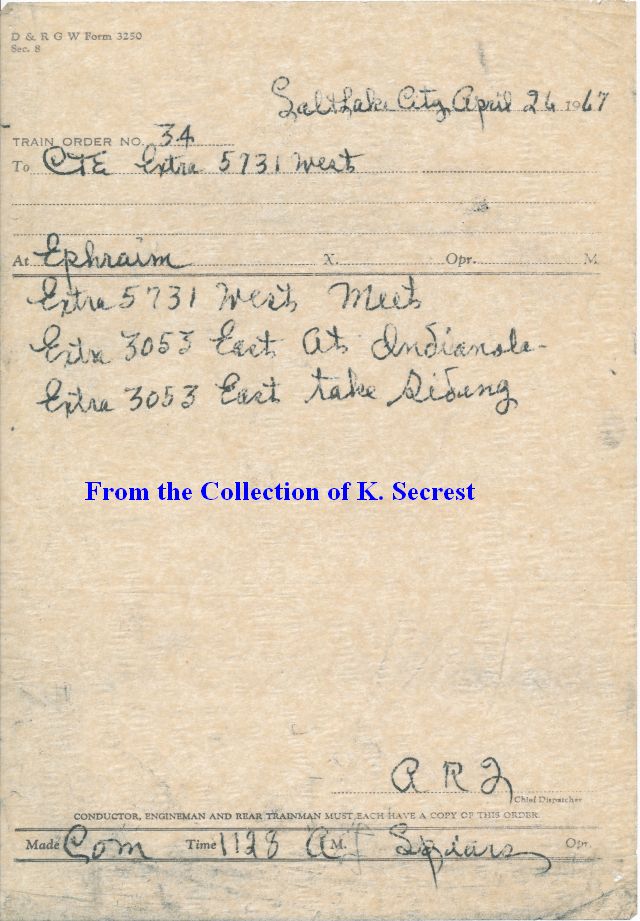 D & R G W Form 3250
Sec. 8
Salt Lake City, April 26 1967
TRAIN ORDER NO. 34
To C&E Extra 5731 West
At Ephraim X. Opr. M.
Extra 5731 West Meet
Extra 3053 East At Indianola
Extra 3053 East take Siding
From the Collection of K. Secrest
A R
Chief Dispatcher
CONDUCTOR, ENGINEMAN AND REAR TRAINMAN MUST EACH HAVE A COPY OF THIS ORDER.
Made Com Time 1128 A M. Opr.